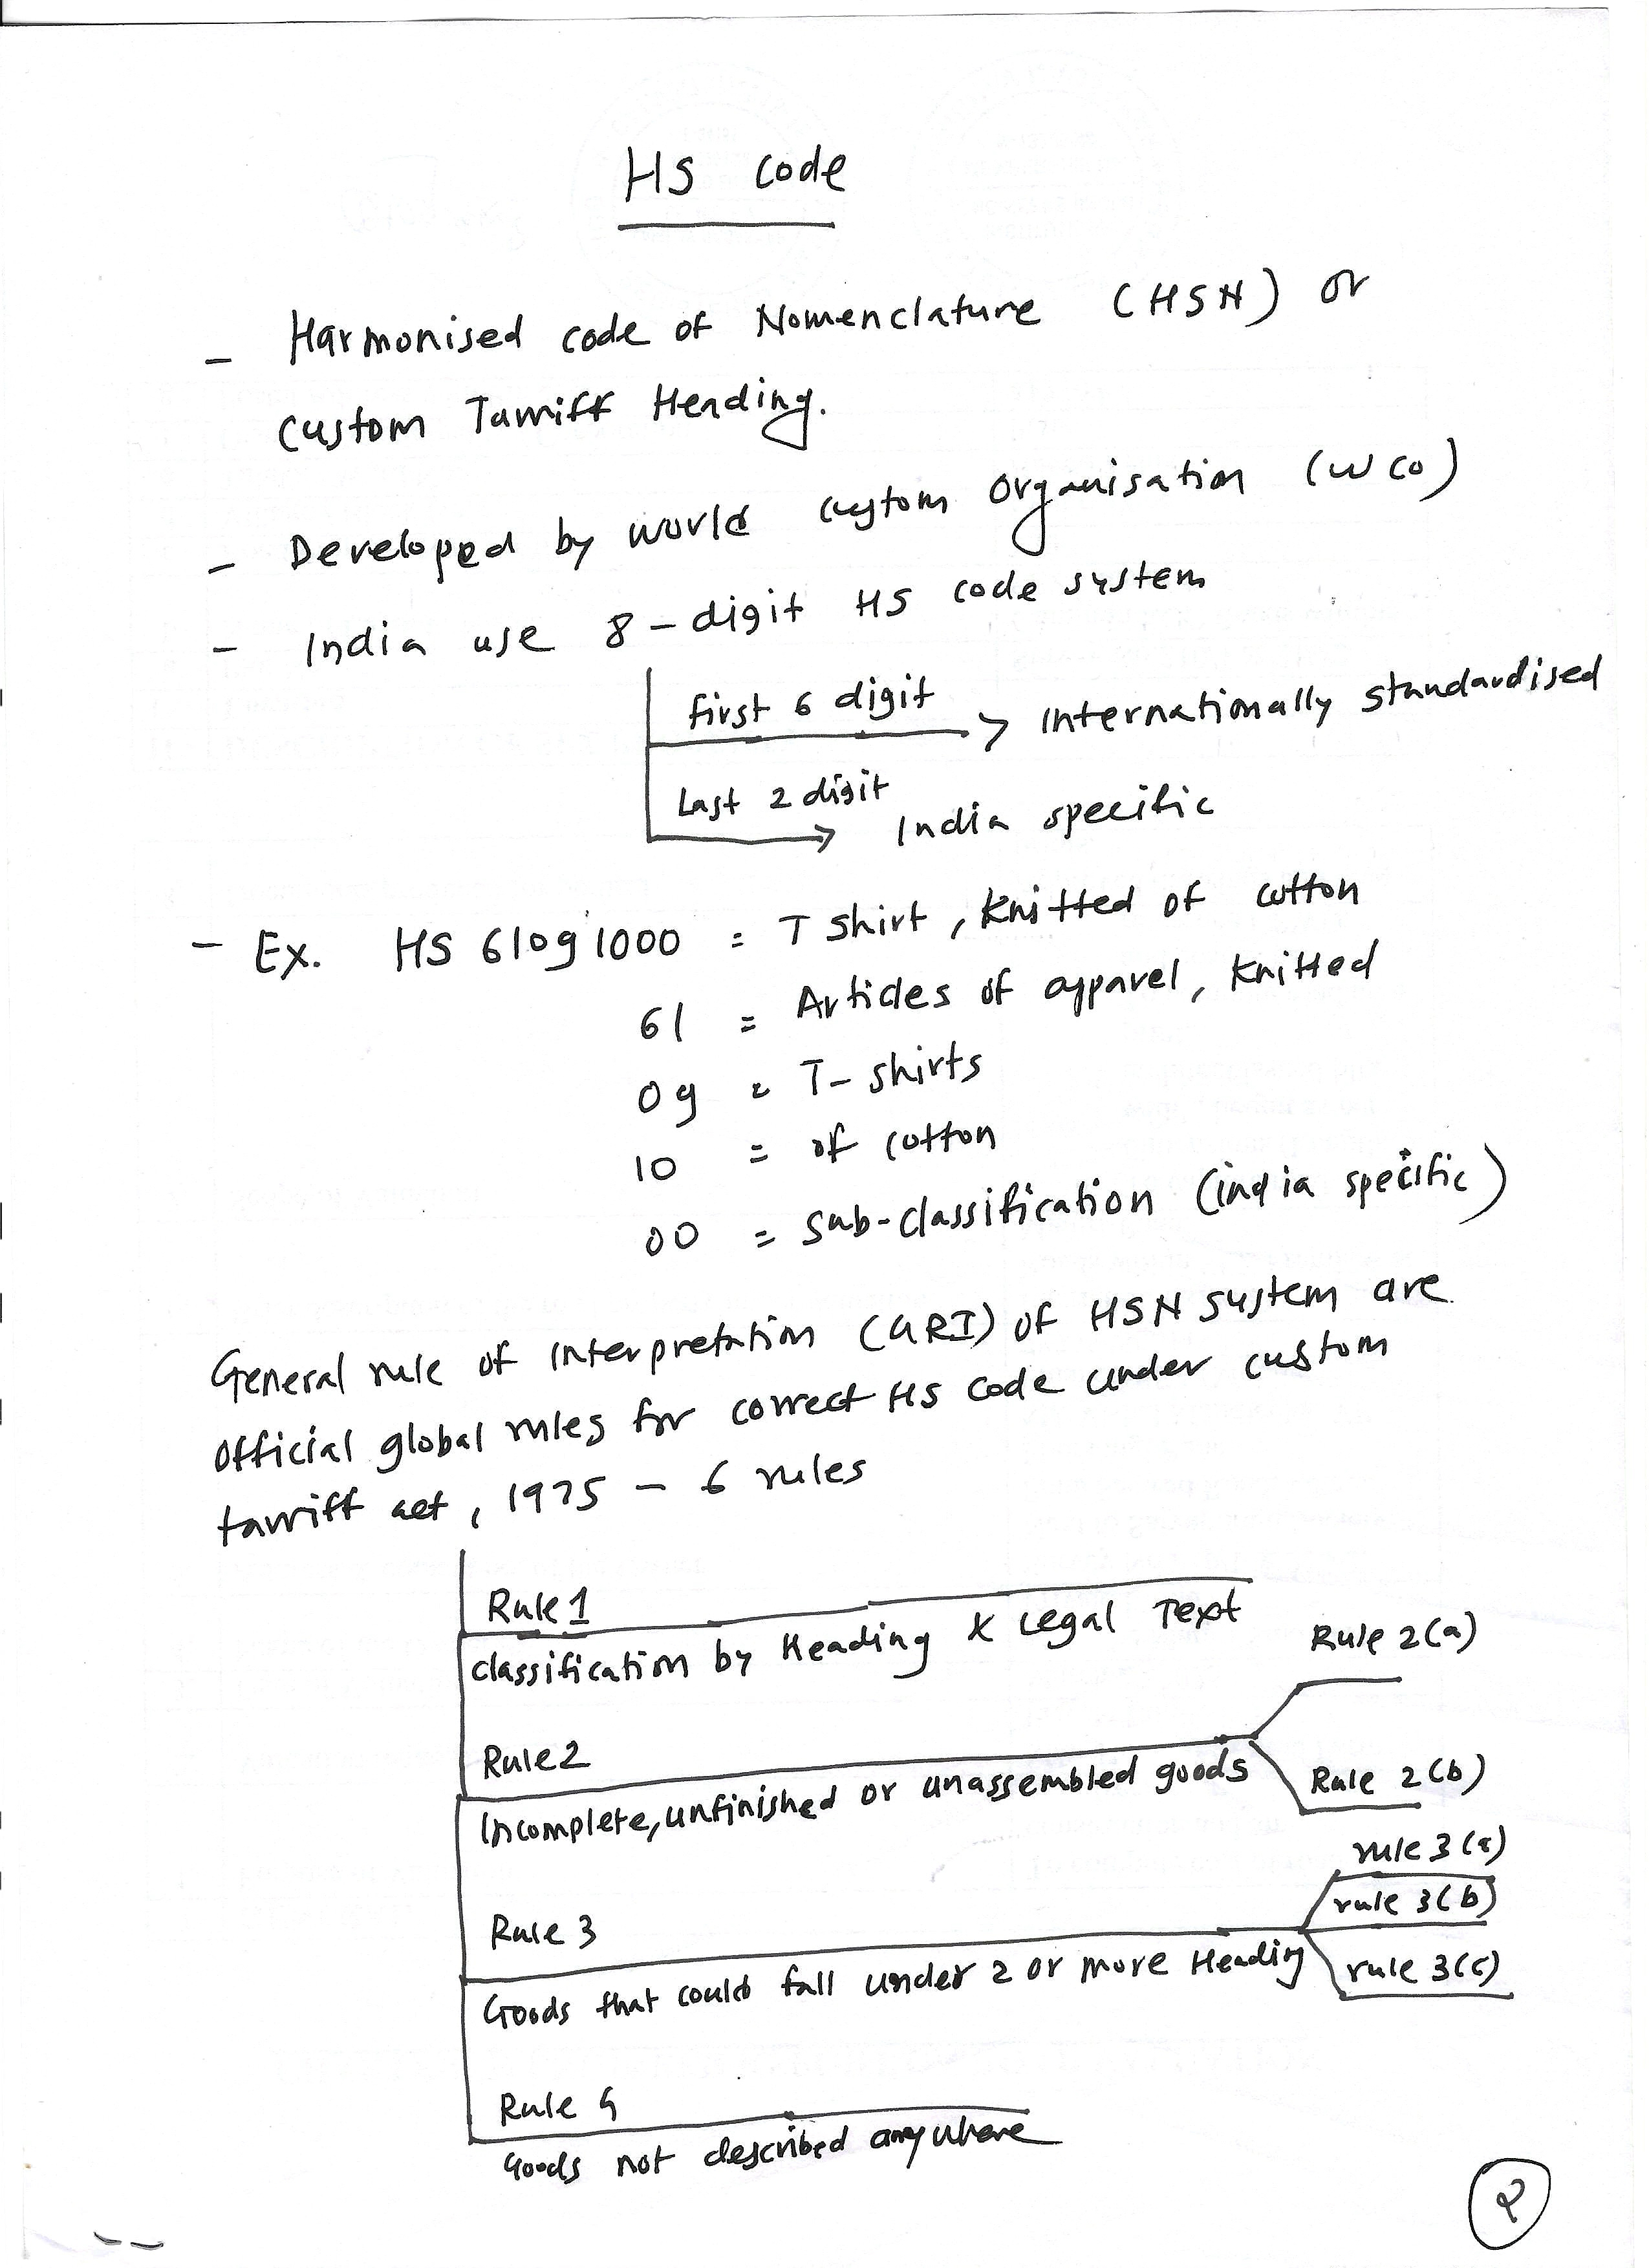 HS code
- Harmonised code of Nomenclature (HSN) or
custom Tarriff Heading.
- Developed by world custom organisation (WCO)
- India use 8-digit HS code system
first 6 digit > internationally standardised
Last 2 digit → India specific
- Ex. HS 61091000 = T shirt, knitted of cotton
61 = Articles of apparel, knitted
09 = T-shirts
10 = of cotton
00 = sub-classification (india specific)
General rule of interpretation (GRI) of HSN system are
official global rules for correct HS code under custom
tarriff act, 1975 - 6 rules
Rule 1
classification by Heading & Legal Text
Rule 2(a)
Rule 2
Incomplete, unfinished or unassembled goods
Rule 2(b)
rule 3(a)
rule 3(b)
Rule 3
Goods that could fall under 2 or more Heading
rule 3(c)
Rule 4
Goods not described anywhere
2